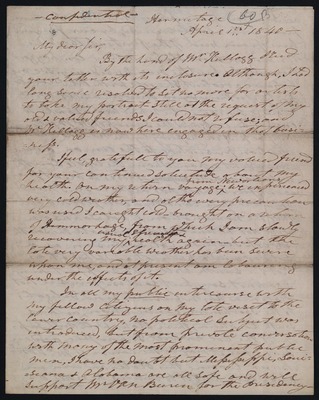 Confidential
Hermitage
April 1840
My dear Sir,
By the hand of Mr Kellogg I recd
your letter with its inclosure. Although, I had
long since resolved to set no more for artists
to take my portrait still at the request of my
old & valued friends I could not refuse; and
Mr Kellogg is now here engaged in that busi
ness.
I feel grateful to you my valued friend
for your continued solicitude about my
health. On my return voyage, we experienced
very cold weather, and of the every precaution
was used I caught cold, brought on a return
of Hemorhage, from which I am slowly
recovering my usual health again but the
late very variable weather has been severe
upon me, and at present am labouring
under the effects of it.
In all my public intercourse with
my fellow citizens on my late visit to the
lower country, no political subject was
introduced, but from private conversation
with many of the most prominent public
men, I have no doubt but Mississippi, Loui
seana & Alabama are all safe and will
support Mr Van Buren for the Presidency